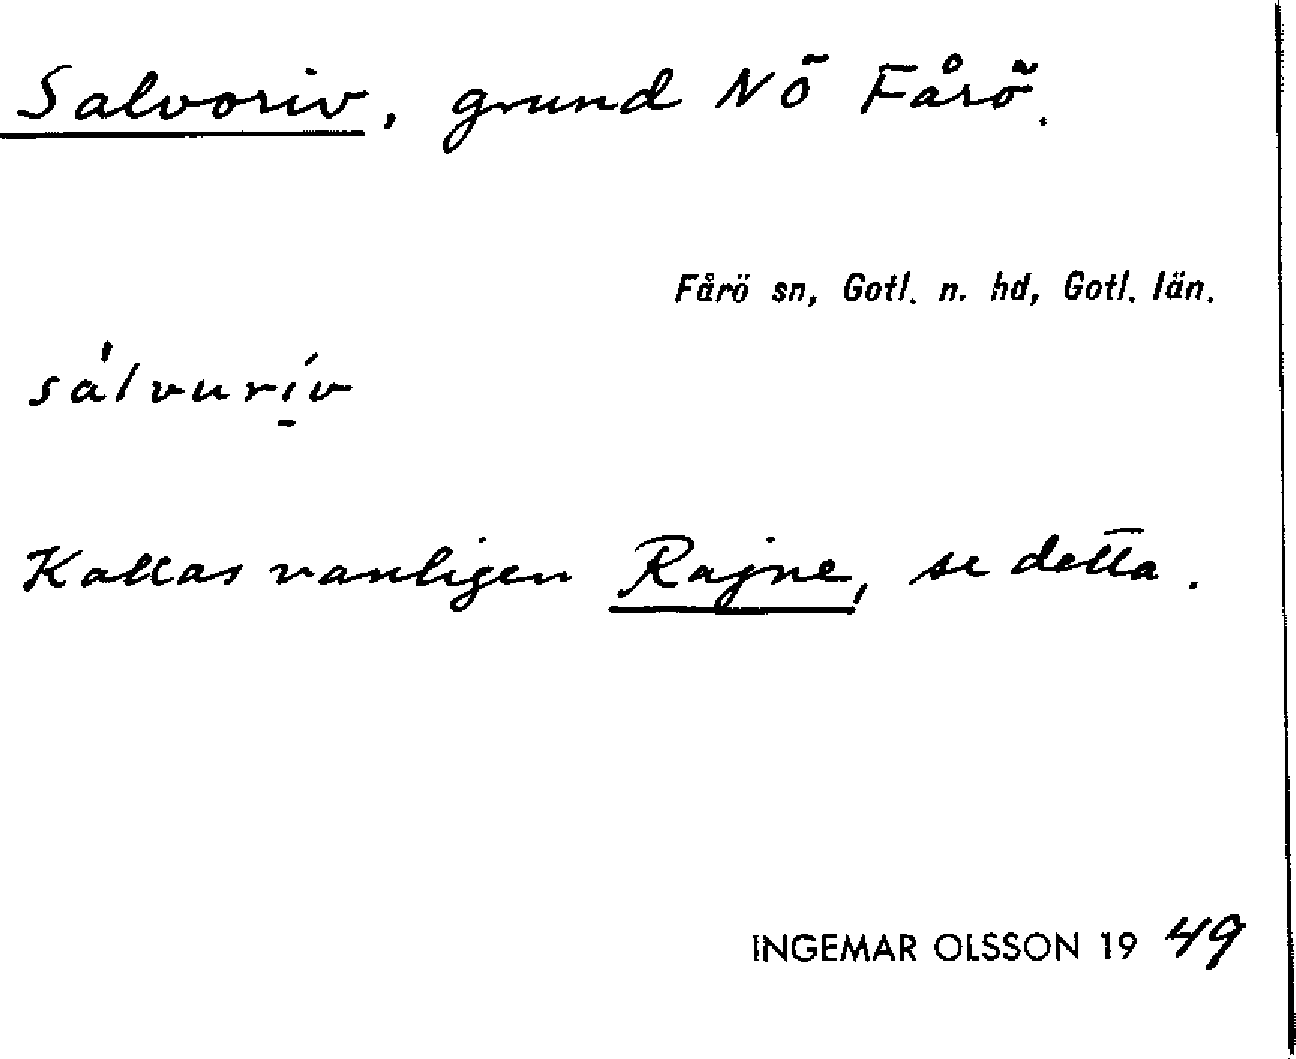 Salvoriv, grund NÖ Fårö.
Fårö sn, Gotl. n. hd, Gotl. län.
sa̍lvurí̱v
Kallas vanligen Rajne, se detta.
INGEMAR OLSSON 19 49